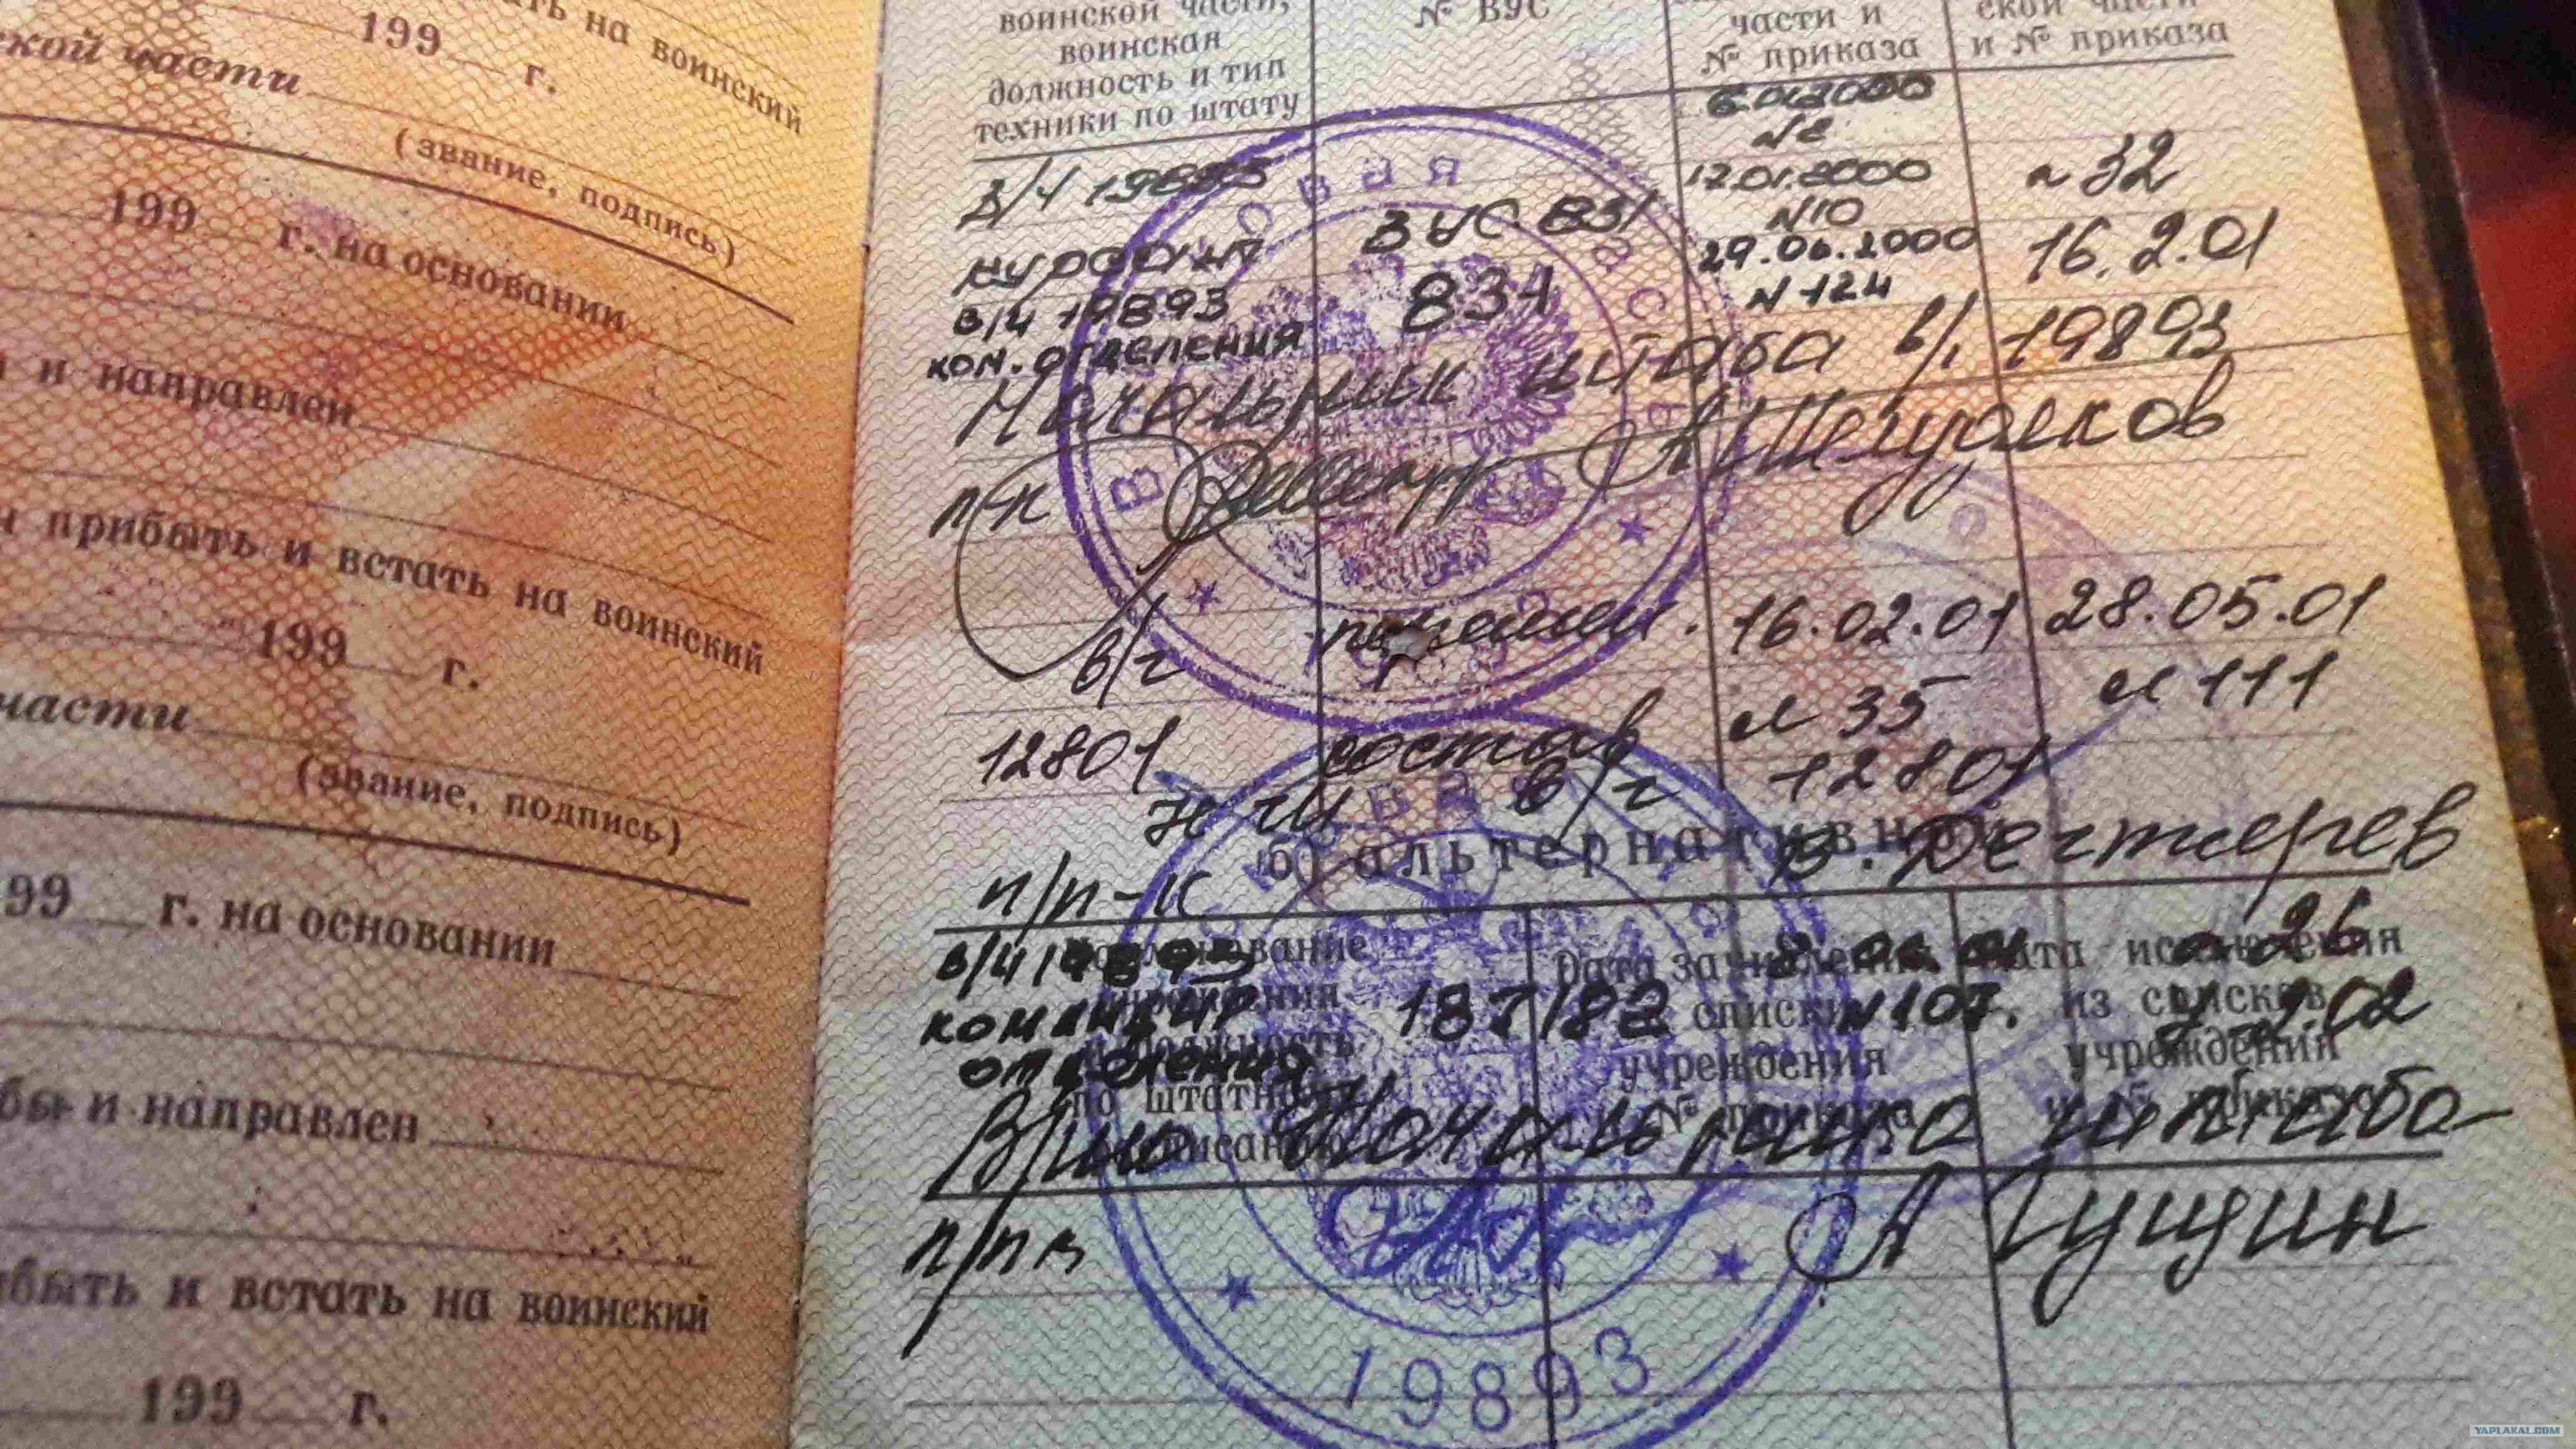 ть на воинский
199 г.
ской части
(звание, подпись)
199 г. на основании
и направлен
прибыть и встать на воинский
199 г.
части
(звание, подпись)
99 г. на основании
бы и направлен
ибыть и встать на воинский
199 г.
воинской части,
воинская
должность и тип
техники по штату
№ ВУС
части и
№ приказа
ской части
и № приказа
6.01.2000
N2
В/ч
17.01.2000
N10
N 32
курсант
ВУС 831
29.06.2000
16.2.01
в/ч 19893
834
N 124
ком. отделения
Начальник штаба в/ч 19893
п/п-к
в/ч
16.02.01
28.05.01
N 35
N 111
12801
состав
НШ в/ч 12801
б) альтернативная
п/п-к
В. Дегтярев
в/ч 19893
наименование
учреждения
должность
по штатному
расписанию
командир
отделения
187182
Дата зачисления
в списки
учреждения
и № приказа
N107.
Дата исключения
из списков
учреждения
и № приказа
N 26
Врио Начальника штаба
п/п-к
А Гущин
19893
YAPLAKAL.COM